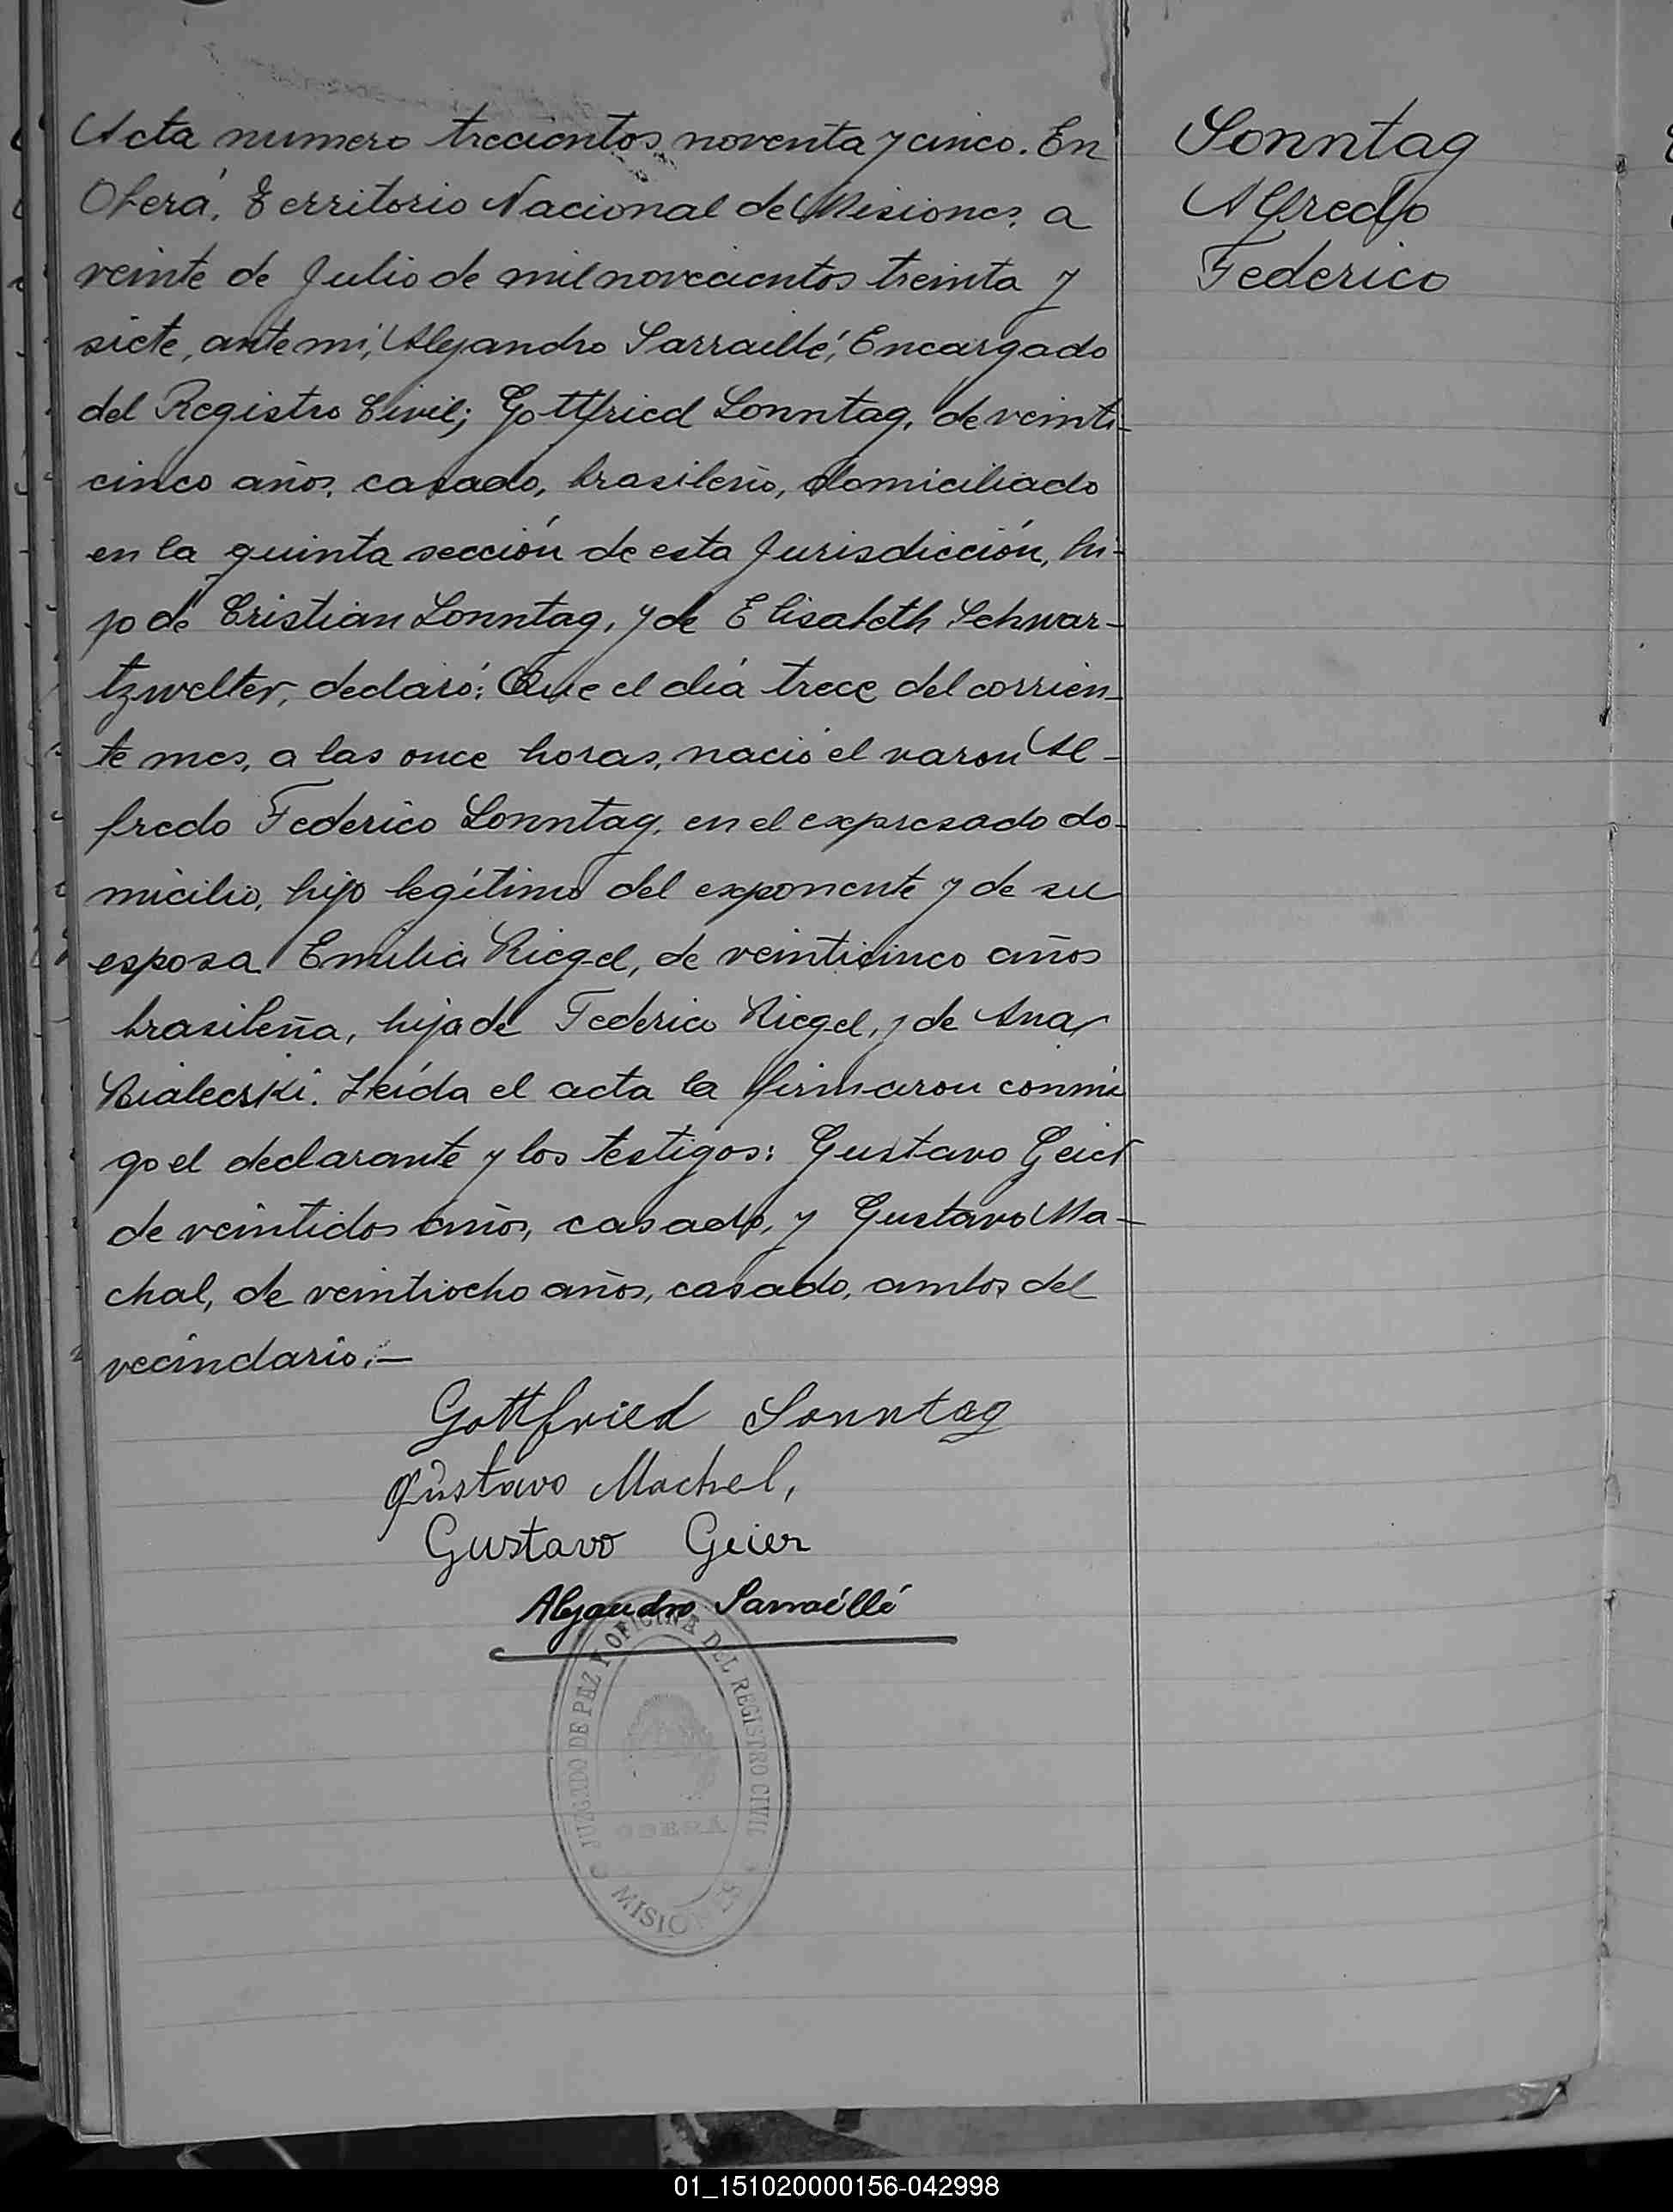 Acta numero trecientos noventa y cinco. En
Oberá, Territorio Nacional de Misiones, a
veinte de Julio de mil novecientos treinta y
siete, ante mi, Alejandro Sarraillé, Encargado
del Registro Civil; Gottfried Sonntag, de veinti-
cinco años, casado, brasileño, domiciliado
en la quinta sección de esta Jurisdicción, hi-
jo de Cristian Sonntag, y de Elisabeth Schwar-
tzwelter, declaró: Que el día trece del corrien-
te mes, a las once horas, nació el varon Al-
fredo Federico Sonntag, en el expresado do-
micilio, hijo legítimo del exponente y de su
esposa Emilia Riegel, de veinticinco años
brasileña, hija de Federico Riegel, y de Ana
Bialecski. Leída el acta la firmaron conmi
go el declarante y los testigos: Gustavo Geier
de veintidos años, casado, y Gustavo Ma-
chal, de veintiocho años, casado, ambos del
vecindario.—
Gottfried Sonntag
Gustavo Machel,
Gustavo Geier
Alejandro Sarraillé
JUZGADO DE PAZ Y OFICINA DEL REGISTRO CIVIL
OBERÁ
MISIONES
Sonntag
Alfredo
Federico
01_151020000156-042998